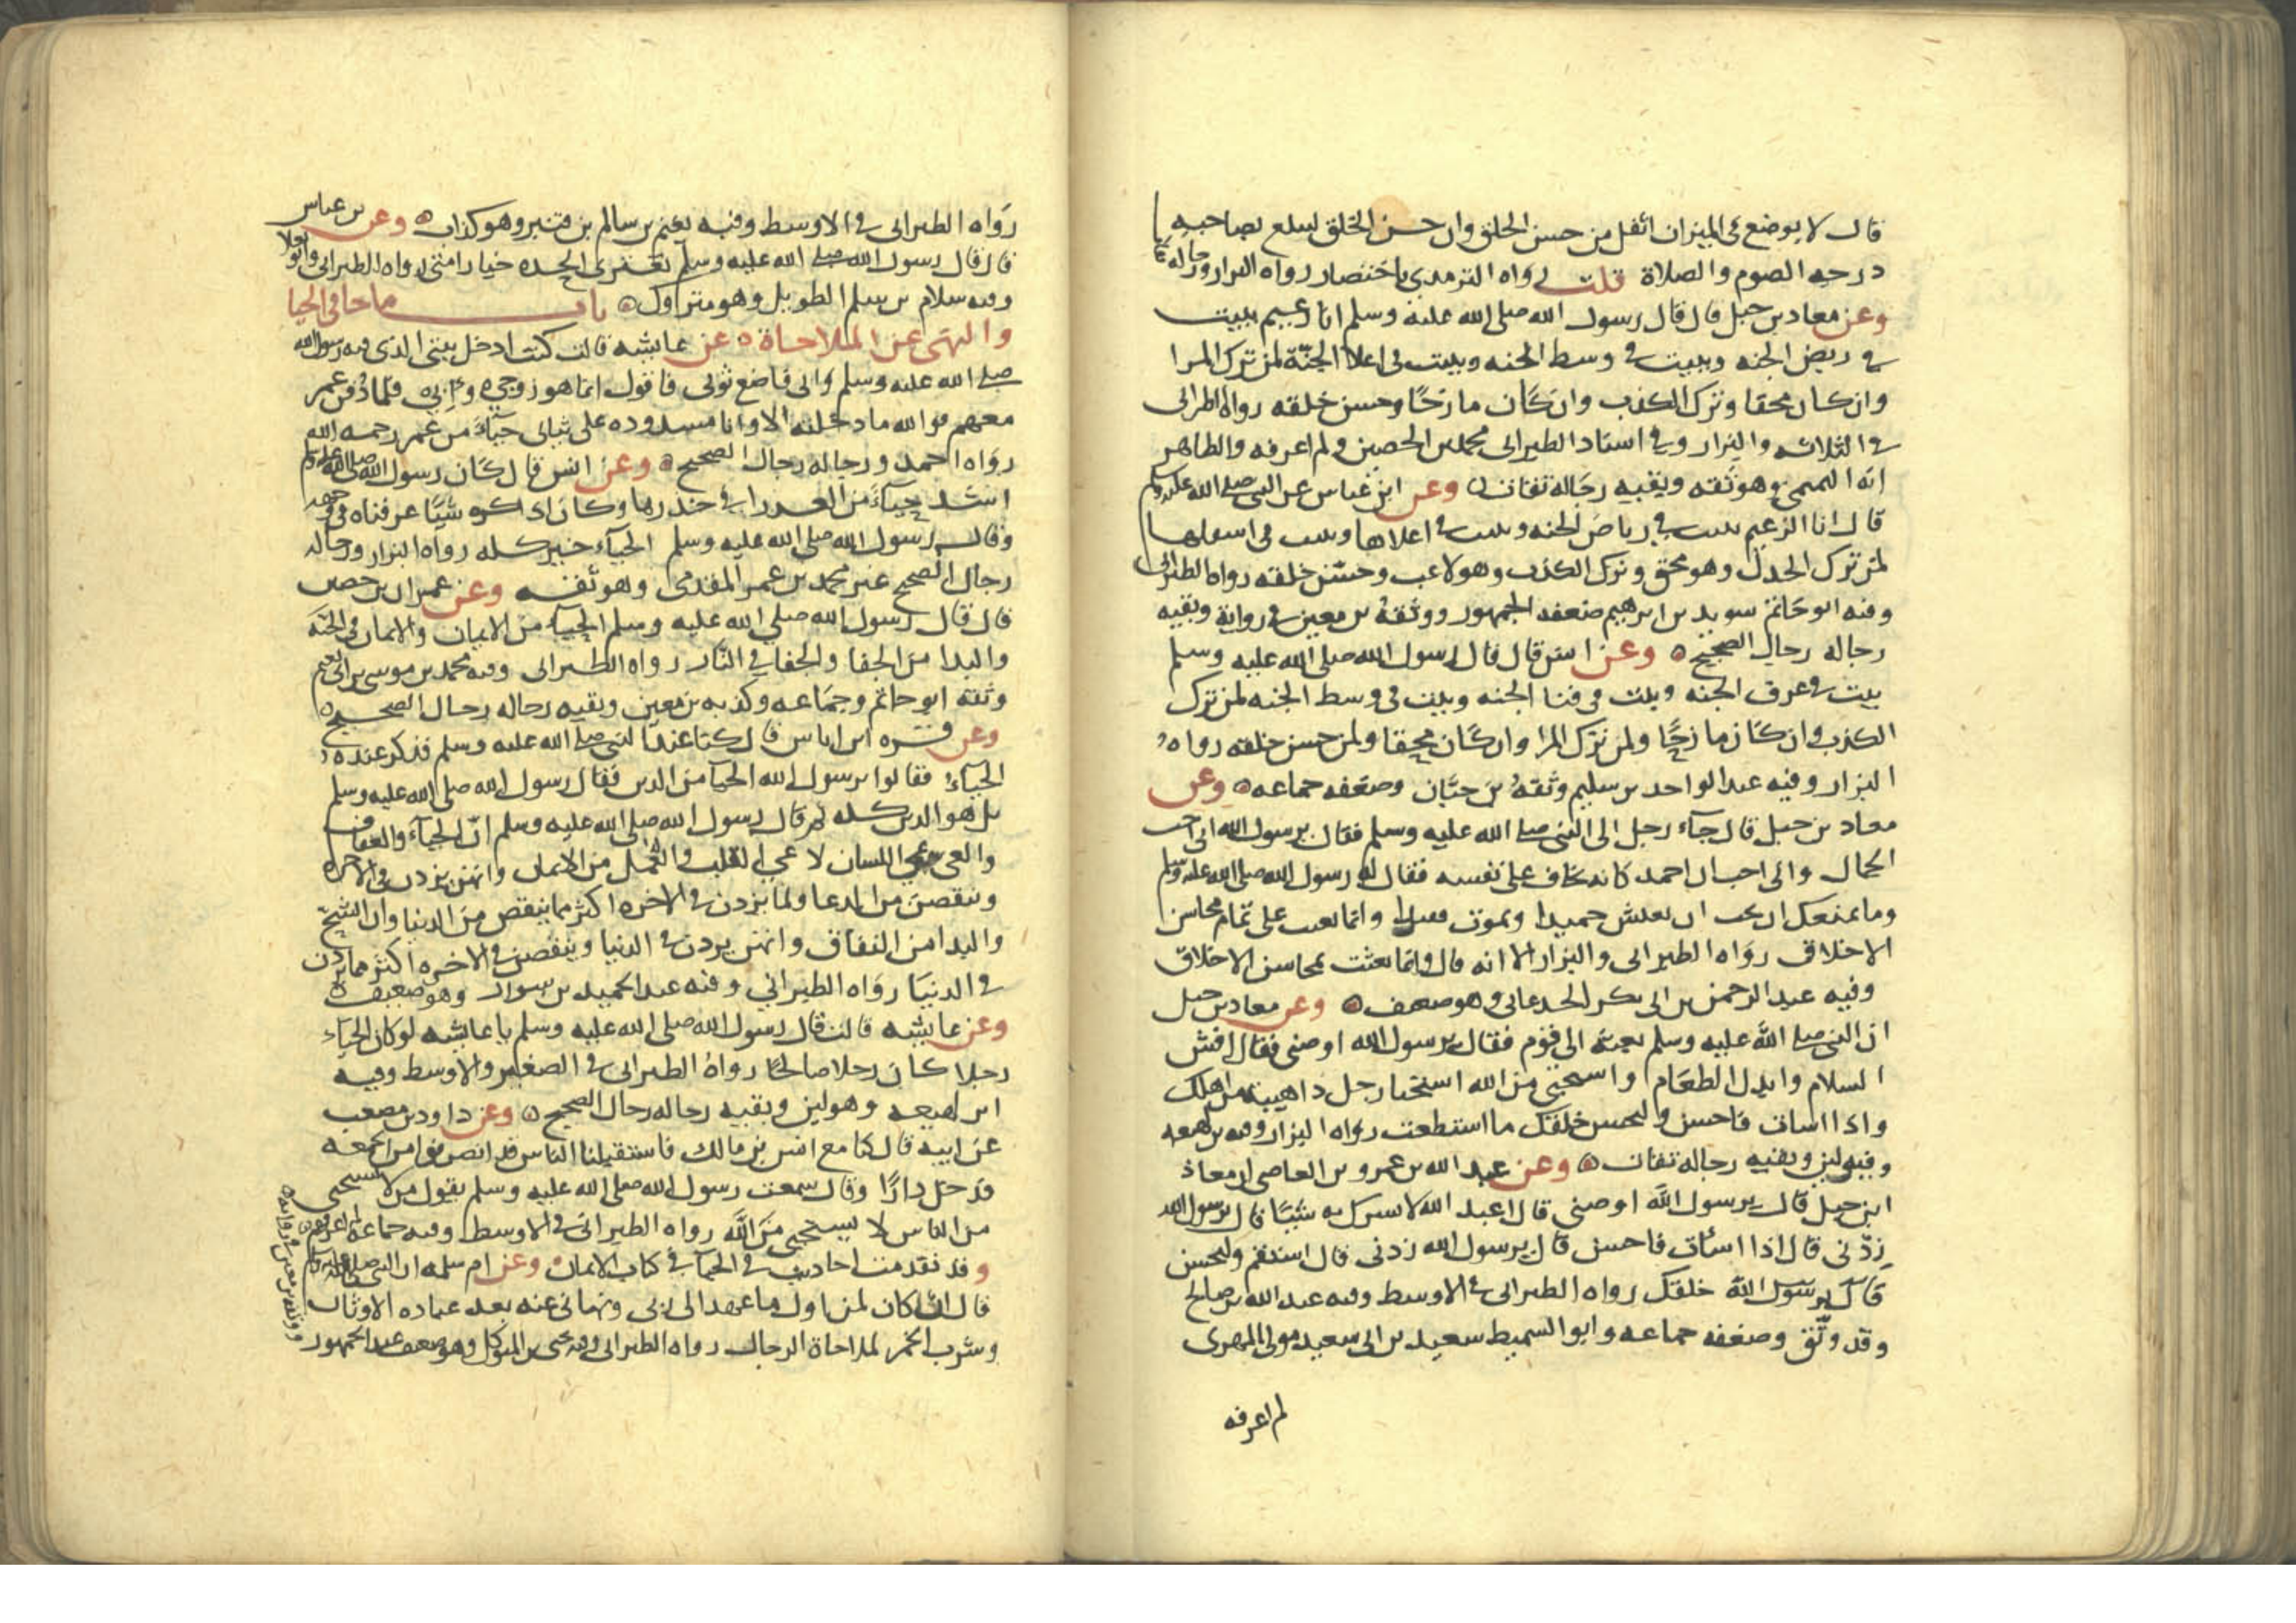 قال لا يوضع في الميزان اثقل من حسن الخلق وان حسن الخلق ليبلغ بصاحبه
درجه الصوم والصلاة قلت رواه الترمدي باختصار رواه البزار ورجاله ثقات
وعن معاد بن جبل قال قال رسول الله صلى الله عليه وسلم انا زعيم ببيت
في ربض الجنه وببيت في وسط الجنه وببيت في اعلا الجنة لمن ترك المرا
وان كان محقا وترك الكذب وان كان مازحا وحسن خلقه رواه الطبراني
في الثلاثه والبزار وفي اسناد الطبراني محمد بن الحصين ولم اعرفه والظاهر
انه التميمي وهو ثقه وبقيه رجاله ثقات وعن ابن عباس عن النبي صلى الله عليه وسلم
قال انا الزعيم ببيت في رياض الجنه وببيت في اعلاها وببيت في اسفلها
لمن ترك الجدل وهو محق وترك الكذب وهو لاعب وحسن خلقه رواه الطبراني
وفيه ابو حاتم سويد بن ابرهيم ضعفه الجمهور ووثقه بن معين في رواية وبقيه
رجاله رجال الصحيح وعن انس قال قال رسول الله صلى الله عليه وسلم
بيت في غرف الجنه وبيت في فنا الجنه وبيت في وسط الجنه لمن ترك
الكذب وان كان مازحا ولمن ترك المرا وان كان محقا ولمن حسن خلقه رواه
البزار وفيه عبد الواحد بن سليم وثقه بن حبان وضعفه جماعه وعن
معاد بن جبل قال جاء رجل الى النبي صلى الله عليه وسلم فقال يرسول الله اني احب
الجمال واني احب ان احمد كانه يخاف على نفسه فقال له رسول الله صلى الله عليه وسلم
وما يمنعك ان تحب ان تعيش حميدا وتموت وانما بعثت على تمام محاسن
الاخلاق رواه الطبراني والبزار الا انه قال وانما بعثت بمحاسن الاخلاق
وفيه عبد الرحمن بن ابي بكر الجدعاني وهو ضعيف وعن معاد بن جبل
ان النبي صلى الله عليه وسلم بعثه الى قوم فقال يرسول الله اوصني فقال افش
السلام وابدل الطعام واستحيي من الله استحيا رجل ذا هيبة من اهلك
واذا اسات فاحسن ولتحسن خلقك ما استطعت رواه البزار وفيه بن لهيعه
وفيه لين وبقيه رجاله ثقات وعن عبد الله بن عمرو بن العاصي ان معاذ
ابن جبل قال يرسول الله اوصني قال اعبد الله لا تشرك به شيئا قال يرسول الله
زدني قال اذا اسات فاحسن قال يرسول الله زدني قال استقم ولتحسن
قال يرسول الله خلقك رواه الطبراني في الاوسط وفيه عبد الله بن صالح
وقد وثق وضعفه جماعه وابو السميط سعيد بن ابي سعيد مولى المهري
لم اعرفه
رواه الطبراني في الاوسط وفيه يغنم بن سالم بن قنبر وهو كذاب وعن بن عباس
قال قال رسول الله صلى الله عليه وسلم تعتري الحده خيار امتي رواه الطبراني وابو يعلا
وفيه سلام بن سلم الطويل وهو متروك باب ما جا في الحيا
والنهي عن الملاحاة عن عايشه قالت كنت ادخل بيتي الذي فيه رسول الله
صلى الله عليه وسلم وابي فاضع ثوبي فاقول انما هو زوجي وابي فلما دفن عمر
معهم فوالله ما دخلته الا وانا مشدوده على ثيابي حياء من عمر رحمه الله
رواه احمد ورجاله رجال الصحيح وعن انس قال كان رسول الله صلى الله عليه وسلم
اشد حياء من العدرا في خدرها وكان اذا كره شيئا عرفناه في وجهه
وقال رسول الله صلى الله عليه وسلم الحياء خير كله رواه البزار ورجاله
رجال الصحيح غير محمد بن عمر المقدمي وهو ثقه وعن عمران بن حصين
قال قال رسول الله صلى الله عليه وسلم الحياء من الايمان والايمان في الجنه
والبدا من الجفا والجفا في النار رواه الطبراني وفيه محمد بن موسى بن ابي نعيم
وثقه ابو حاتم وجماعه وكذبه بن معين وبقيه رجاله رجال الصحيح
وعن قره ابن اياس قال كنا عند النبي صلى الله عليه وسلم فذكر عنده
الحياء فقالوا يرسول الله الحيا من الدين فقال رسول الله صلى الله عليه وسلم
بل هو الدين كله ثم قال رسول الله صلى الله عليه وسلم ان الحياء والعفاف
والعي عي اللسان لا عي القلب والعمل من الايمان وانهن يزدن في الاخره
وينقصن من الدنيا ولما يزدن في الاخره اكثر مما ينقص من الدنيا وان الشح
والبدا من النفاق وانهن يزدن في الدنيا وينقصن في الاخره اكثر مما يزدن
في الدنيا رواه الطبراني وفيه عبد الحميد بن سوار وهو ضعيف
وعن عايشه قالت قال رسول الله صلى الله عليه وسلم يا عايشه لو كان الحياء
رجلا كان رجلا صالحا رواه الطبراني في الصغير والاوسط وفيه
ابن لهيعه وهو لين وبقيه رجاله رجال الصحيح وعن داود بن مصعب
عن ابيه قال كنا مع انس بن مالك فاستقبلنا الناس قد انصرفوا من الجمعه
فدخل دارا وقال سمعت رسول الله صلى الله عليه وسلم يقول من لا يستحيي
من الناس لا يستحيي من الله رواه الطبراني في الاوسط وفيه جماعه لم اعرفهم
وقد تقدمت احاديث في الحيا في كتاب الايمان وعن ام سلمه ان النبي صلى الله عليه وسلم
قال ان كان لمن اول ما عهد الي ربي ونهاني عنه بعد عباده الاوثان
وشرب الخمر لملاحاة الرجال رواه الطبراني وفيه يحيى بن المتوكل وهو ضعيف عند الجمهور
ووثقه بن معين في روايه